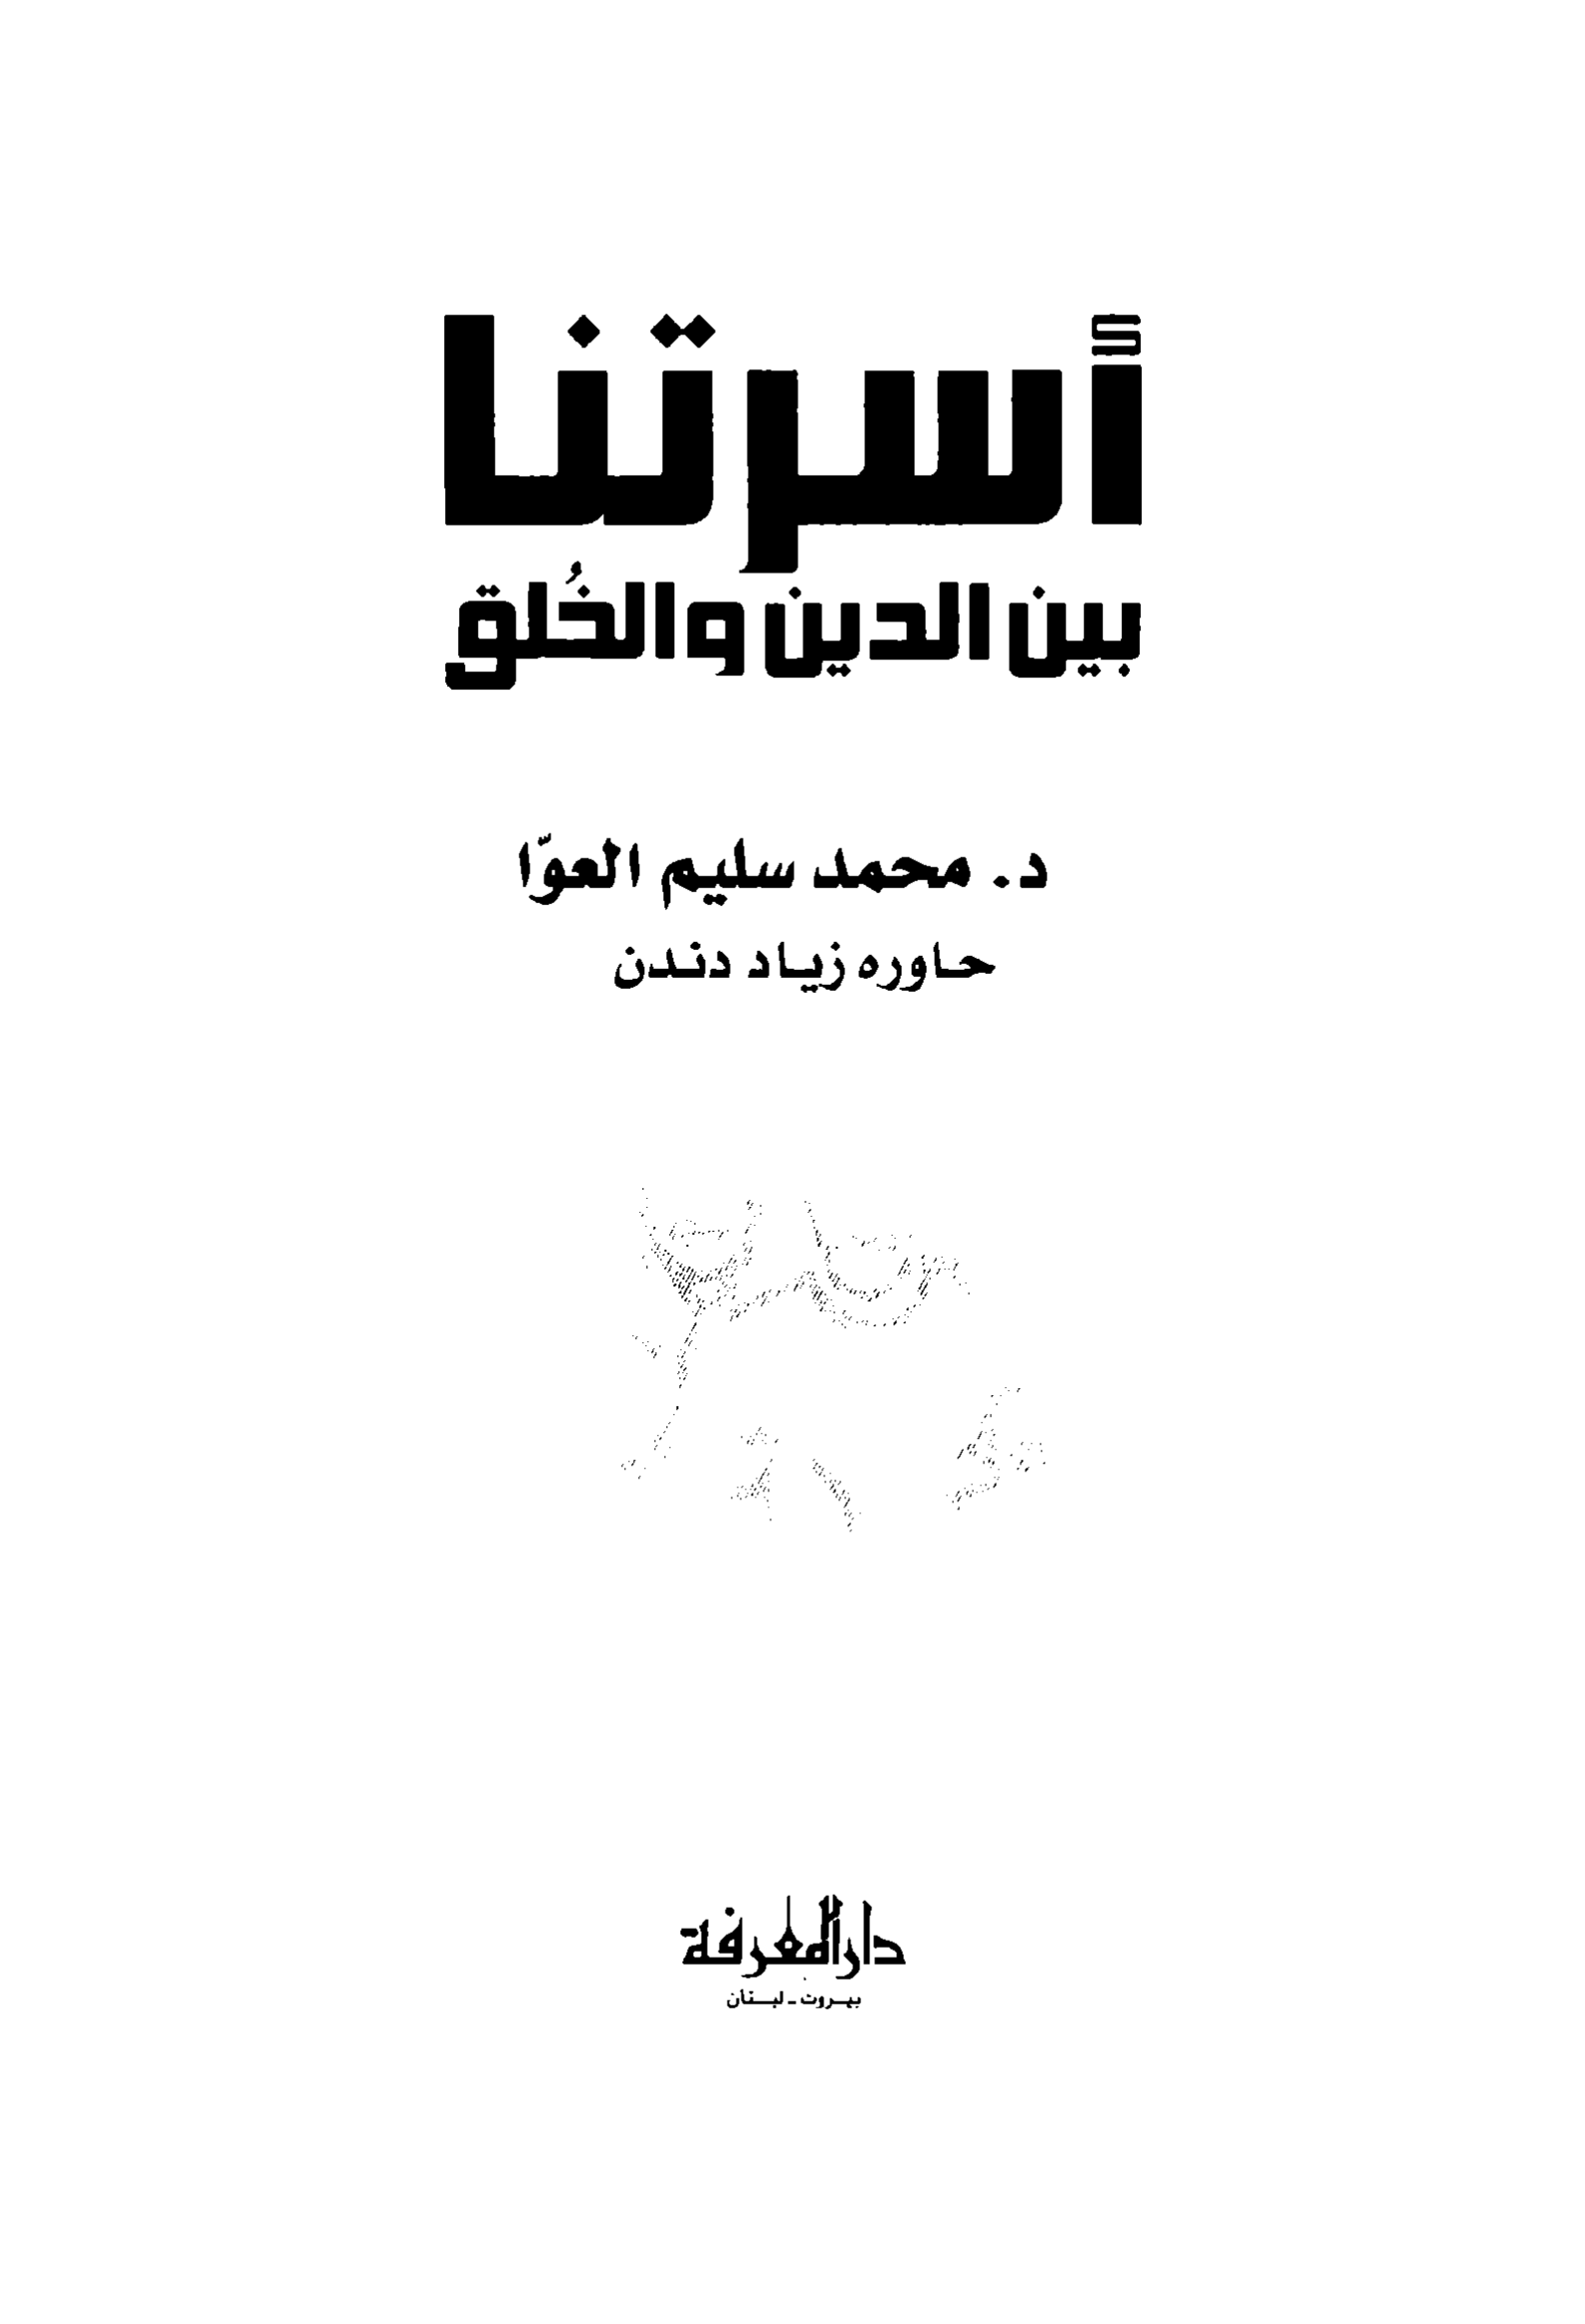 أسرتنا
بين الدين والخُلق
د. محمد سليم العوّا
حاوره زياد دندن
دار المعرفة
بيروت - لبنان